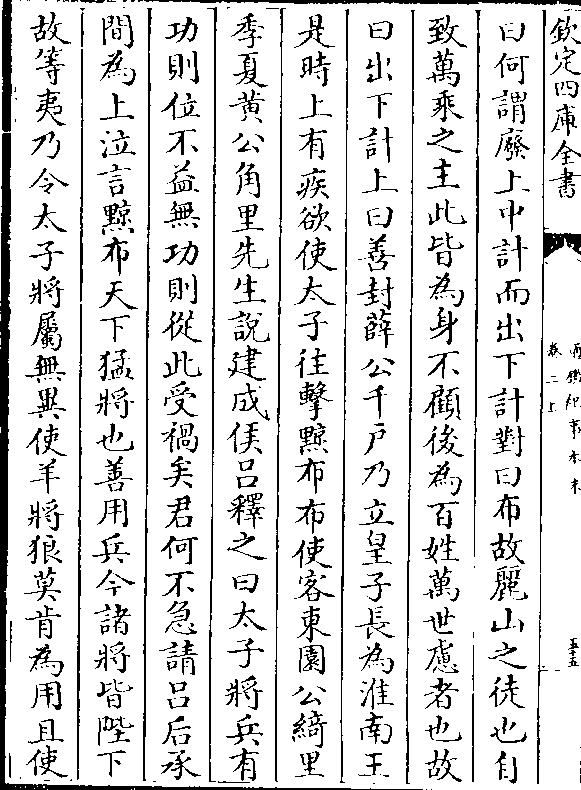 欽定四庫全書
西漢紀事本末
卷二上
曰何謂廢上中計而出下計對曰布故麗山之徒也自
致萬乘之主此皆為身不顧後為百姓萬世慮者也故
曰出下計上曰善封薛公千户乃立皇子長為淮南王
是時上有疾欲使太子往擊黥布布使客東園公綺里
季夏黄公角里先生說建成侯吕釋之曰太子將兵有
功則位不益無功則從此受禍矣君何不急請吕后承
間為上泣言黥布天下猛將也善用兵今諸將皆陛下
故等夷乃令太子將屬無異使羊將狼莫肯為用且使